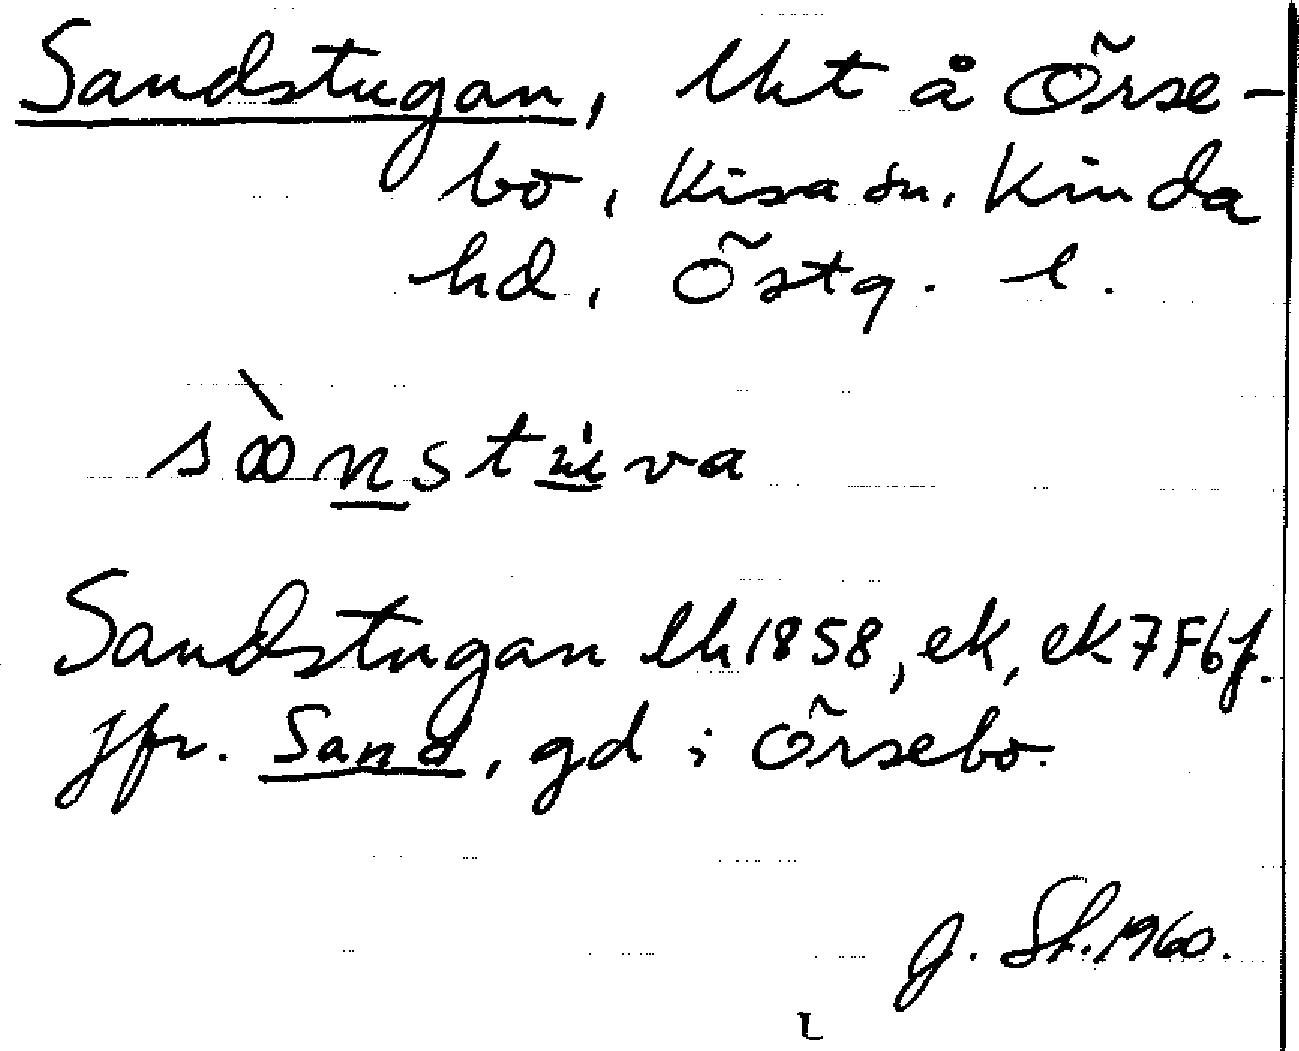 Sandstugan, lht å Örse-
bo, Kisa sn, Kinda
hd, Östg. l.
sànstùva
Sandstugan lh 1858, ek, ek 7F6f.
Jfr. Sand, gd i Örsebo.
G. St. 1960.